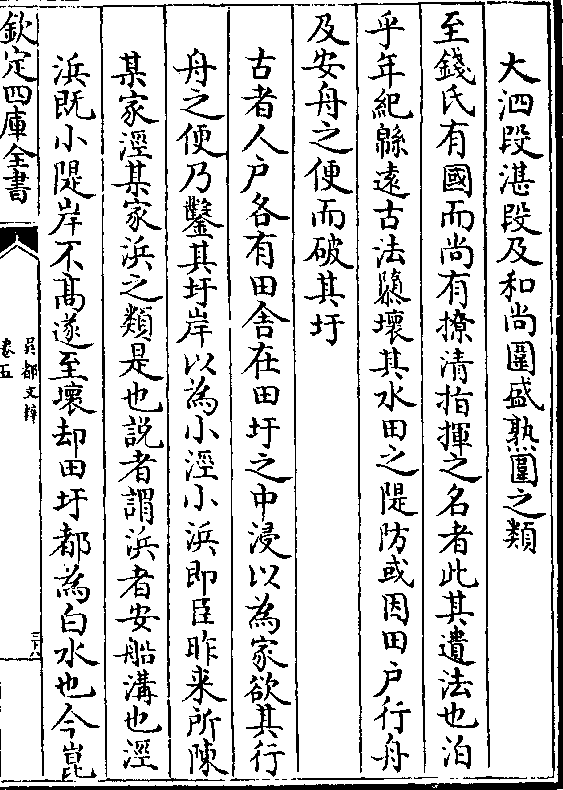 大泗段湛段及和尚圍盛熟圍之類
至錢氏有國而尚有撩清指揮之名者此其遺法也洎
乎年紀緜遠古法隳壞其水田之隄防或因田户行舟
及安舟之便而破其圩
古者人户各有田舍在田圩之中浸以為家欲其行
舟之便乃鑿其圩岸以為小涇小浜即臣昨来所陳
某家涇某家浜之類是也説者謂浜者安船溝也涇
浜既小隄岸不髙遂至壞却田圩都為白水也今崑
欽定四庫全書
吳都文粹
卷五
三十八